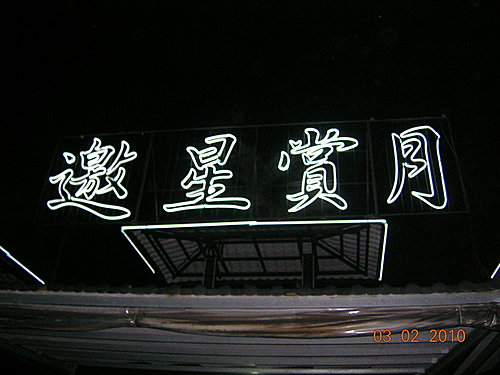 邀星賞月
03.02.2010